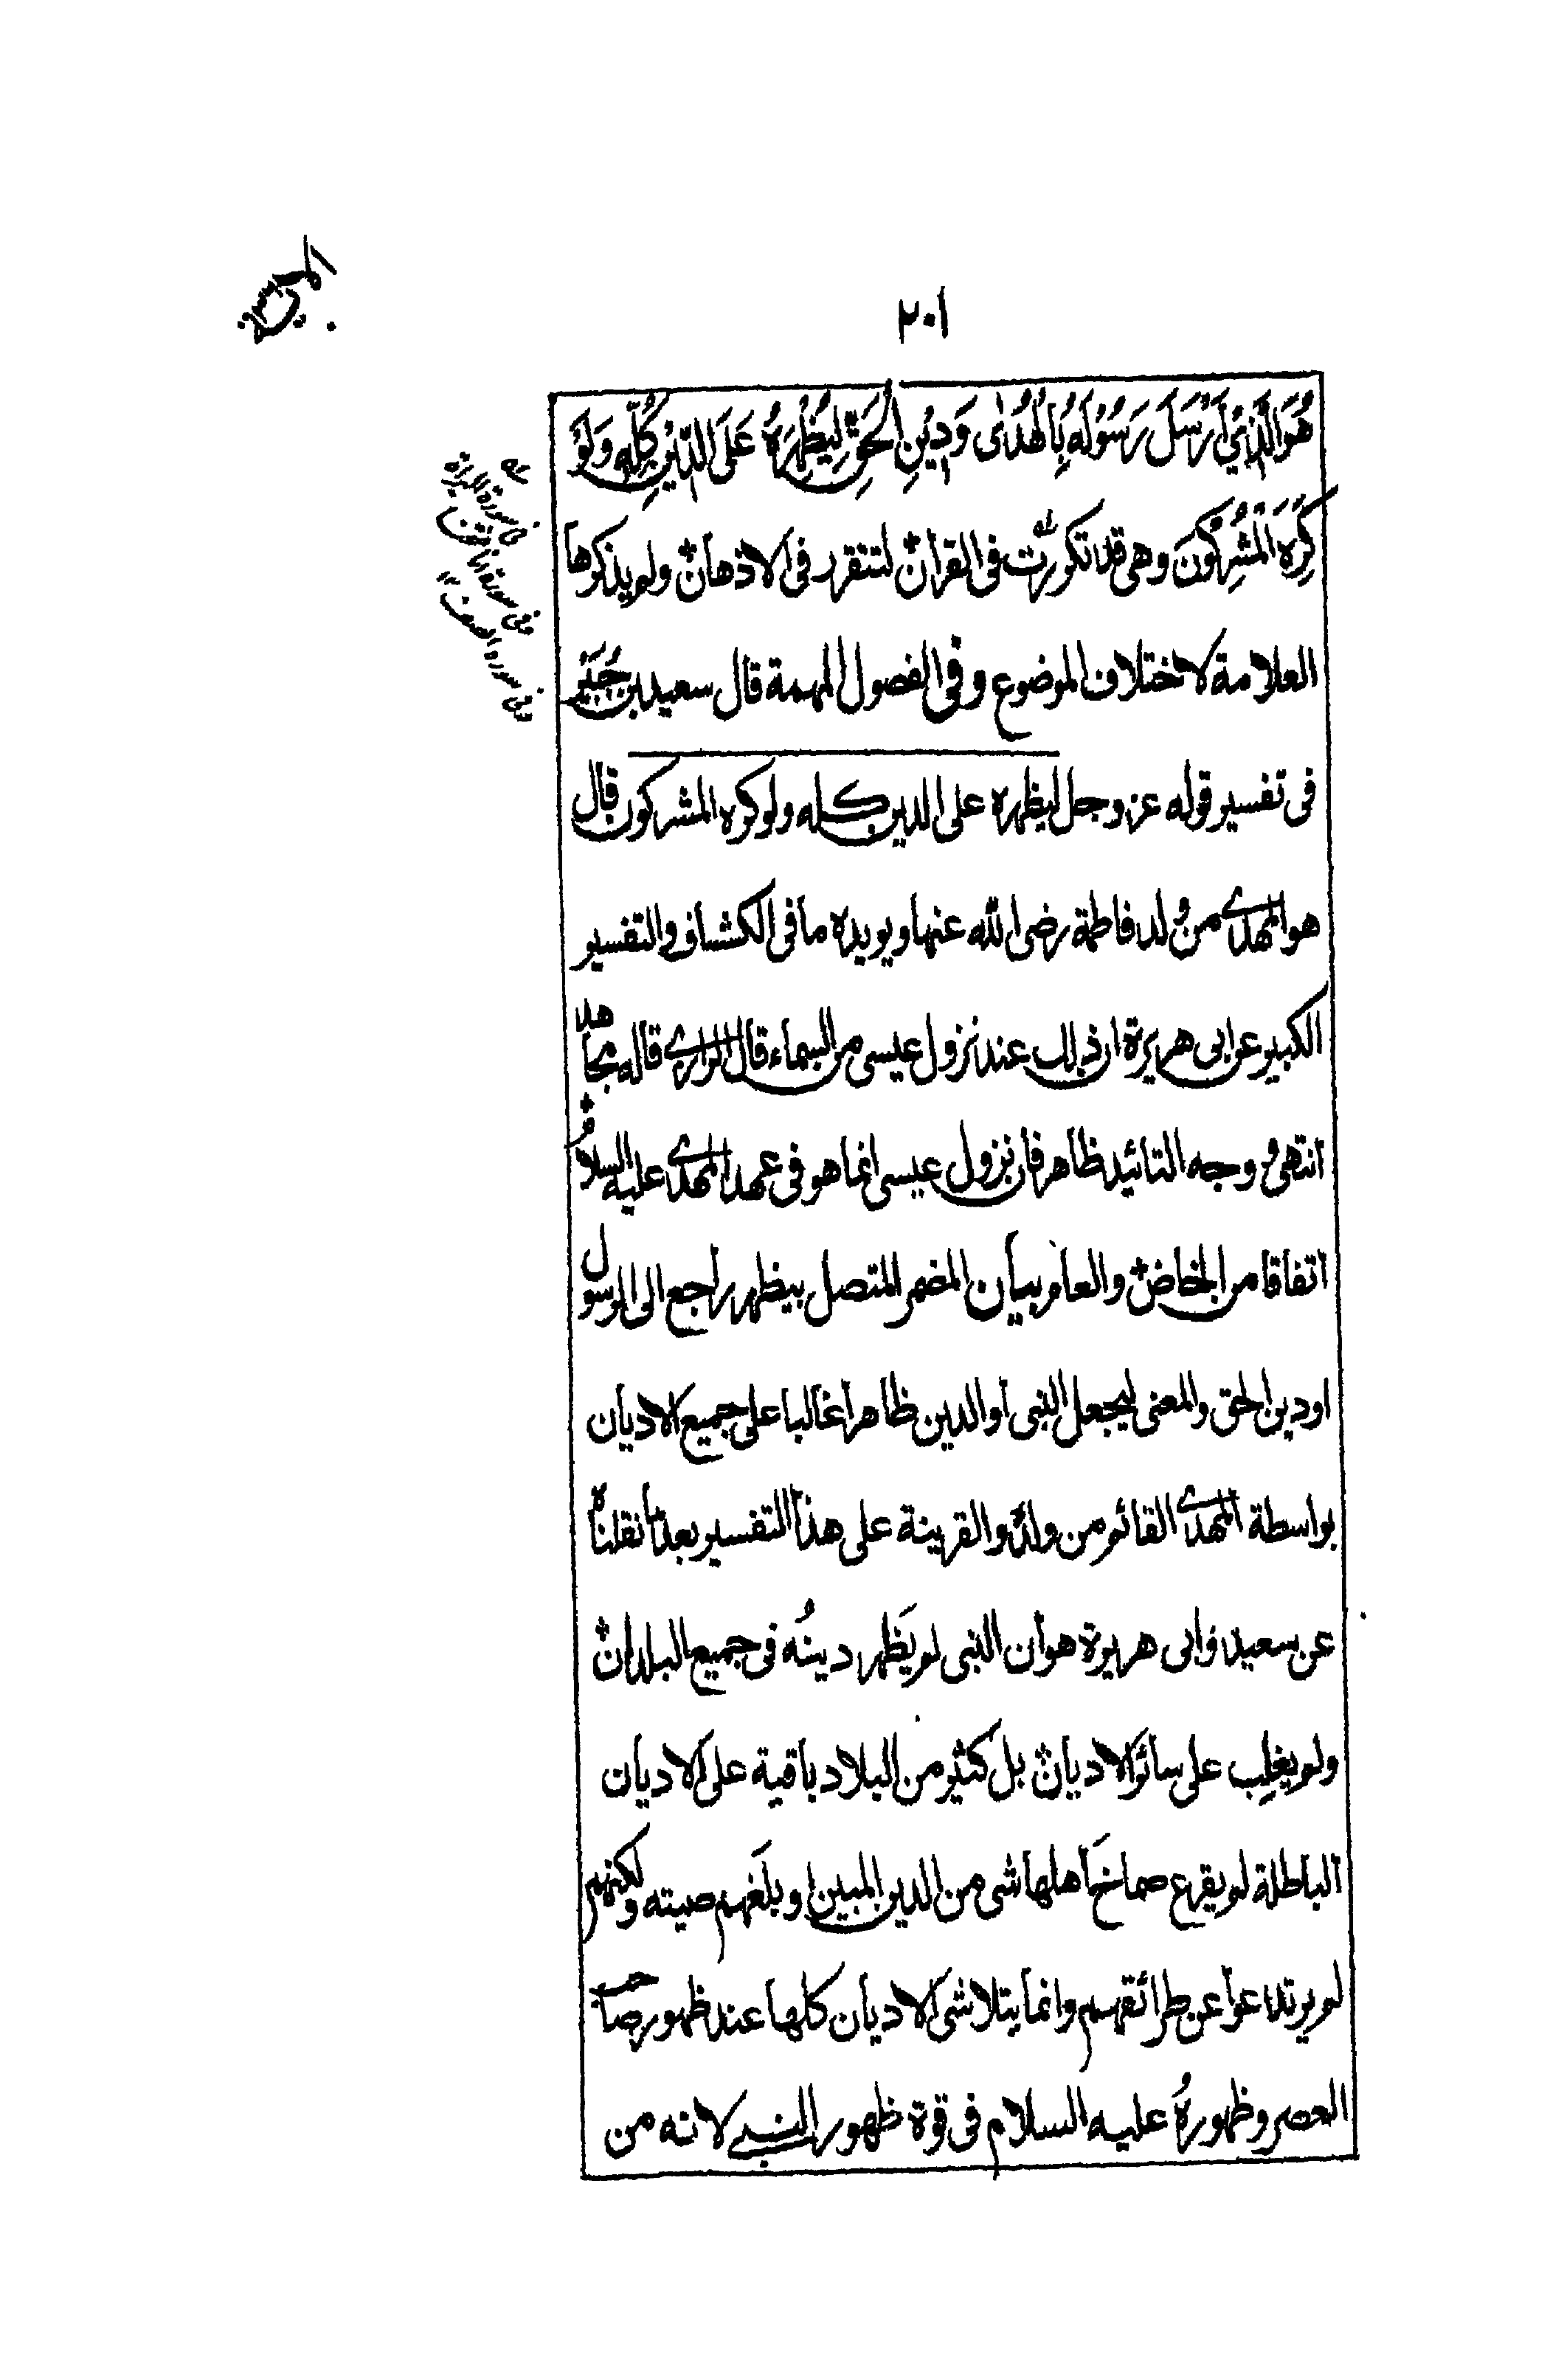 ٢٠١
هُوَ الَّذِيْ اَرْسَلَ رَسُوْلَهُ بِالْهُدٰى وَدِيْنِ الْحَقِّ لِيُظْهِرَهُ عَلَى الدِّيْنِ كُلِّهِ وَلَوْ
كَرِهَ الْمُشْرِكُوْنَ وهى قد تكررت فى القرآن لتتقرر فى الاذهان ولم يذكرها
العلامة لاختلاف الموضوع وفى الفصول المهمة قال سعيد بن جُبَيْر
فى تفسير قوله عز وجل ليظهره على الدين كله ولو كره المشركون قال
هو المهدى من ولد فاطمة رضى الله عنها ويويده ما فى الكشاف والتفسير
الكبير عن ابى هريرة ان ذلك عند نزول عيسى من السماء قال الرازى قاله مجاهد
انتهى ووجه التائيد ظاهر فان نزول عيسى انما هو فى عهد المهدى عليه السلام
اتفاقا من الخاص والعام بيان المضمر المتصل بيظهر راجع الى الرسول
او دين الحق والمعنى ليجعل النبى او الدين ظاهرا غالبا على جميع الاديان
بواسطة المهدى القائم من ولده والقرينة على هذا التفسير بعد ما نقلناه
عن سعيد وابى هريرة هو ان النبى لم يَظهر دينُه فى جميع البلدان
ولم يغلِب على سائر الاديان بل كثير من البلاد باقية على الاديان
الباطلة لم يقرع صماخَ اهلها شى من الدين المبين او بلَغهم صيته ولكنهم
لم يرتدعوا عن طرائقهم وانما يتلاشى الاديان كلها عند ظهور صاحب
العصر وظهورهُ عليه السلام فى قوة ظهور النبى لانه من
فى سورة البراءة
وفى سورة الفتح
وفى سورة الصف ١٢